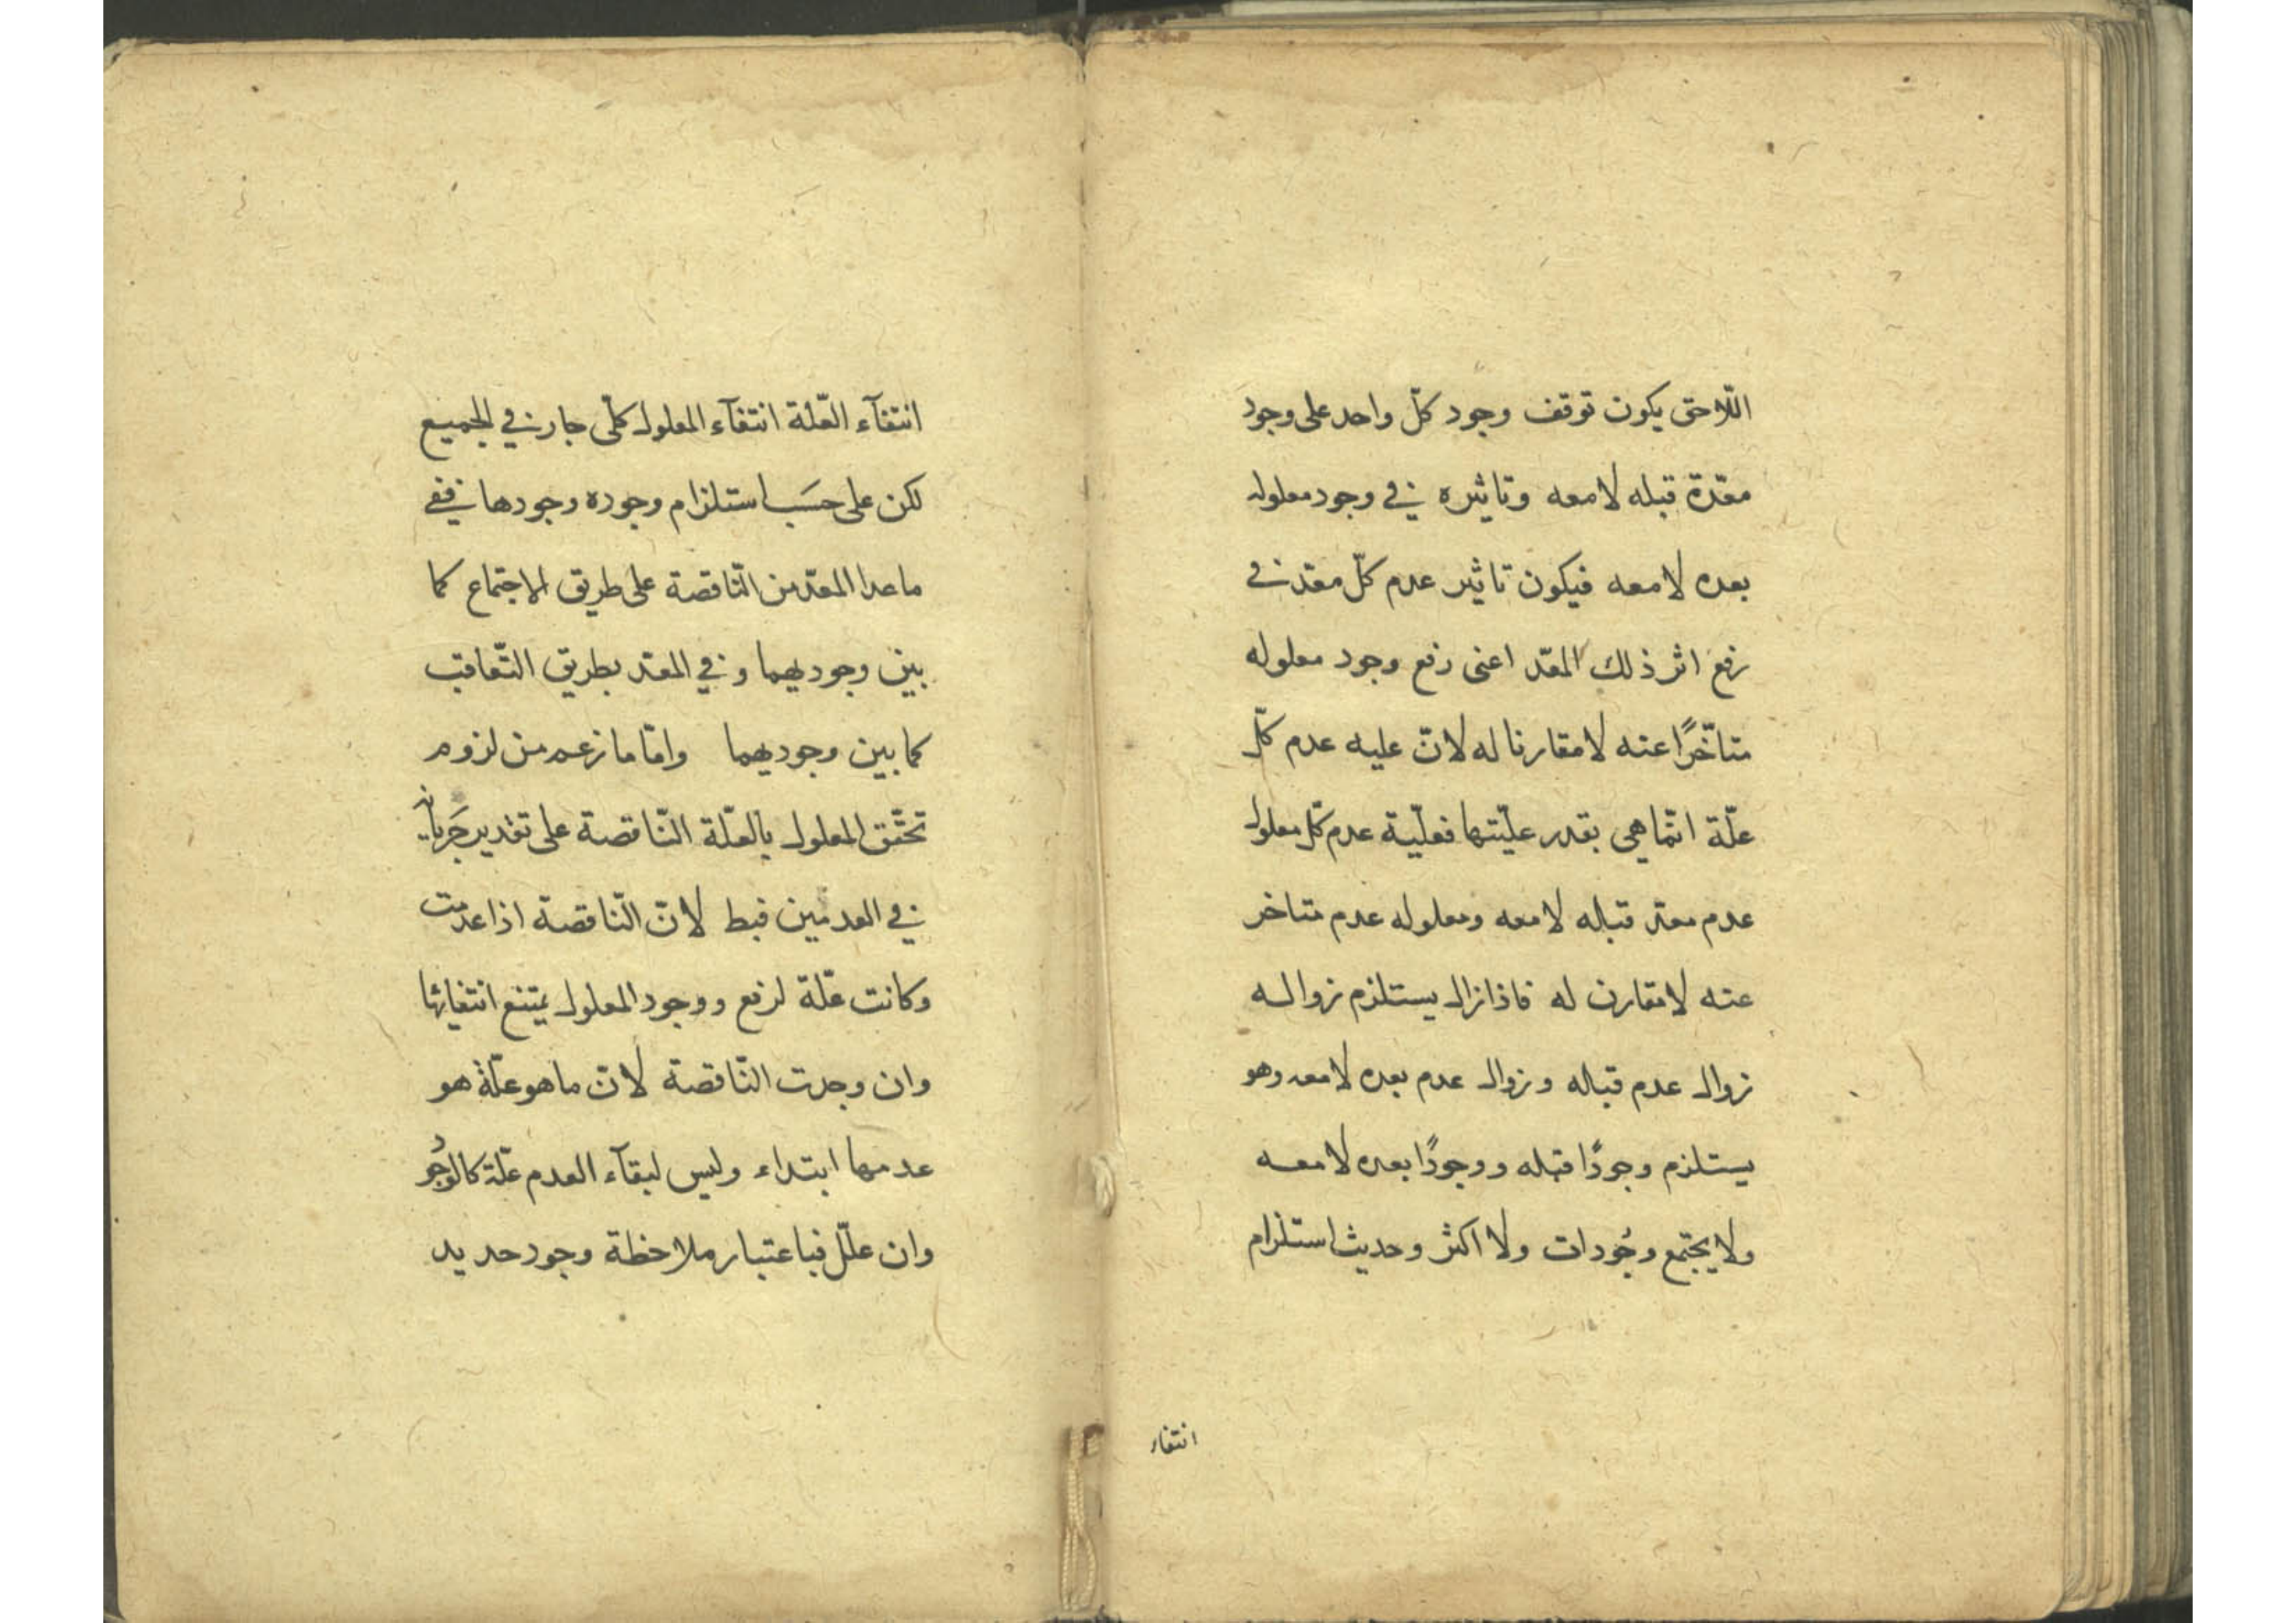 اللّاحق يكون توقف وجود كلّ واحد على وجود
معدّة قبله لا معه وتاثيره في وجود معلوله
بعده لا معه فيكون تاثير عدم كلّ معدّ في
رفع اثر ذلك المعدّ اعنى رفع وجود معلوله
متاخّرًا عنه لا مقارنا له لانّ عليه عدم كلّ
علّة انّما هى بقدر علّيتها فعلّية عدم كلّ معلول
عدم معدّ قبله لا معه ومعلوله عدم متاخر
عنه لا مقارن له فاذا زال يستلزم زواله
زوال عدم قبله وزوال عدم بعده لا معه وهو
يستلزم وجودًا قبله ووجودًا بعده لا معه
ولا يجتمع وجُودات ولا اكثر وحديث استلزام
انتفاء
انتفآء العّلة انتفآء المعلول كلّى جار في الجميع
لكن على حسَب استلزام وجوده وجودها ففى
ما عدا المعدّ من النّاقصة على طريق الاجتماع كما
بين وجوديهما وفي المعدّ بطريق التّعاقب
كما بين وجوديهما وامّا ما زعم من لزوم
تحقّق المعلول بالعلّة النّاقصة على تقدير جَريانه
في العدمين فبط لانّ النّاقصة اذا عدمت
وكانت علّة لرفع ووجود المعلول يمتنع انتفايها
وان وجدت النّاقصة لانّ ما هو علّة هو
عدمها ابتداء وليس لبقآء العدم علّة كالوجُود
وان علّل فباعتبار ملاحظة وجود حديد